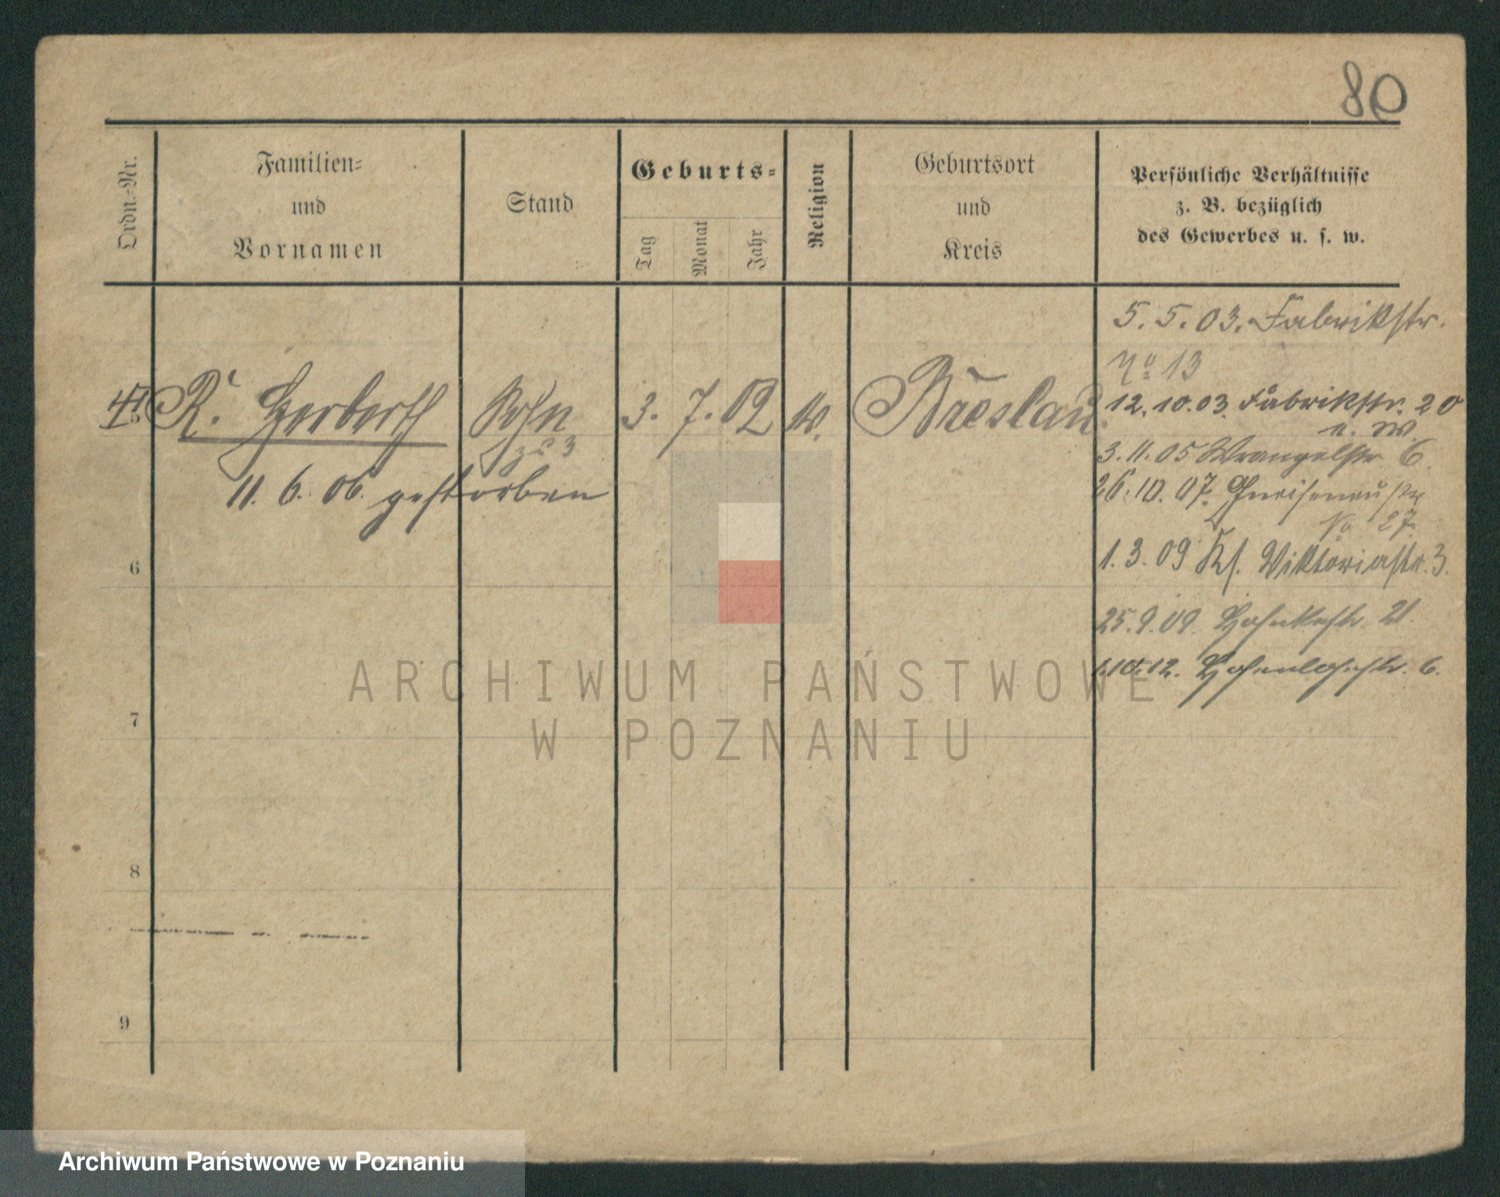 80
Ordn.-Nr.
Familien-
und
Vornamen
Stand
Geburts-
Tag
Monat
Jahr
Religion
Geburtsort
und
Kreis
Persönliche Verhältnisse
z. B. bezüglich
des Gewerbes u. s. w.
5. 5. 03. Fabrikstr.
No 13
R. Herberth Sohn 3. 7. 02 Breslau
zu 3
11. 6. 06. gestorben
12. 10. 03. Fabrikstr. 20
3. 11. 05 Wrangelstr. 6.
26. 10. 07. Gneisenaustr
No 27
1. 3. 09 Viktoriastr. 3.
25. 9. 09. 21.
10. 12. Hohenlohestr. 6.
6
7
8
9
ARCHIWUM PAŃSTWOWE
W POZNANIU
Archiwum Państwowe w Poznaniu